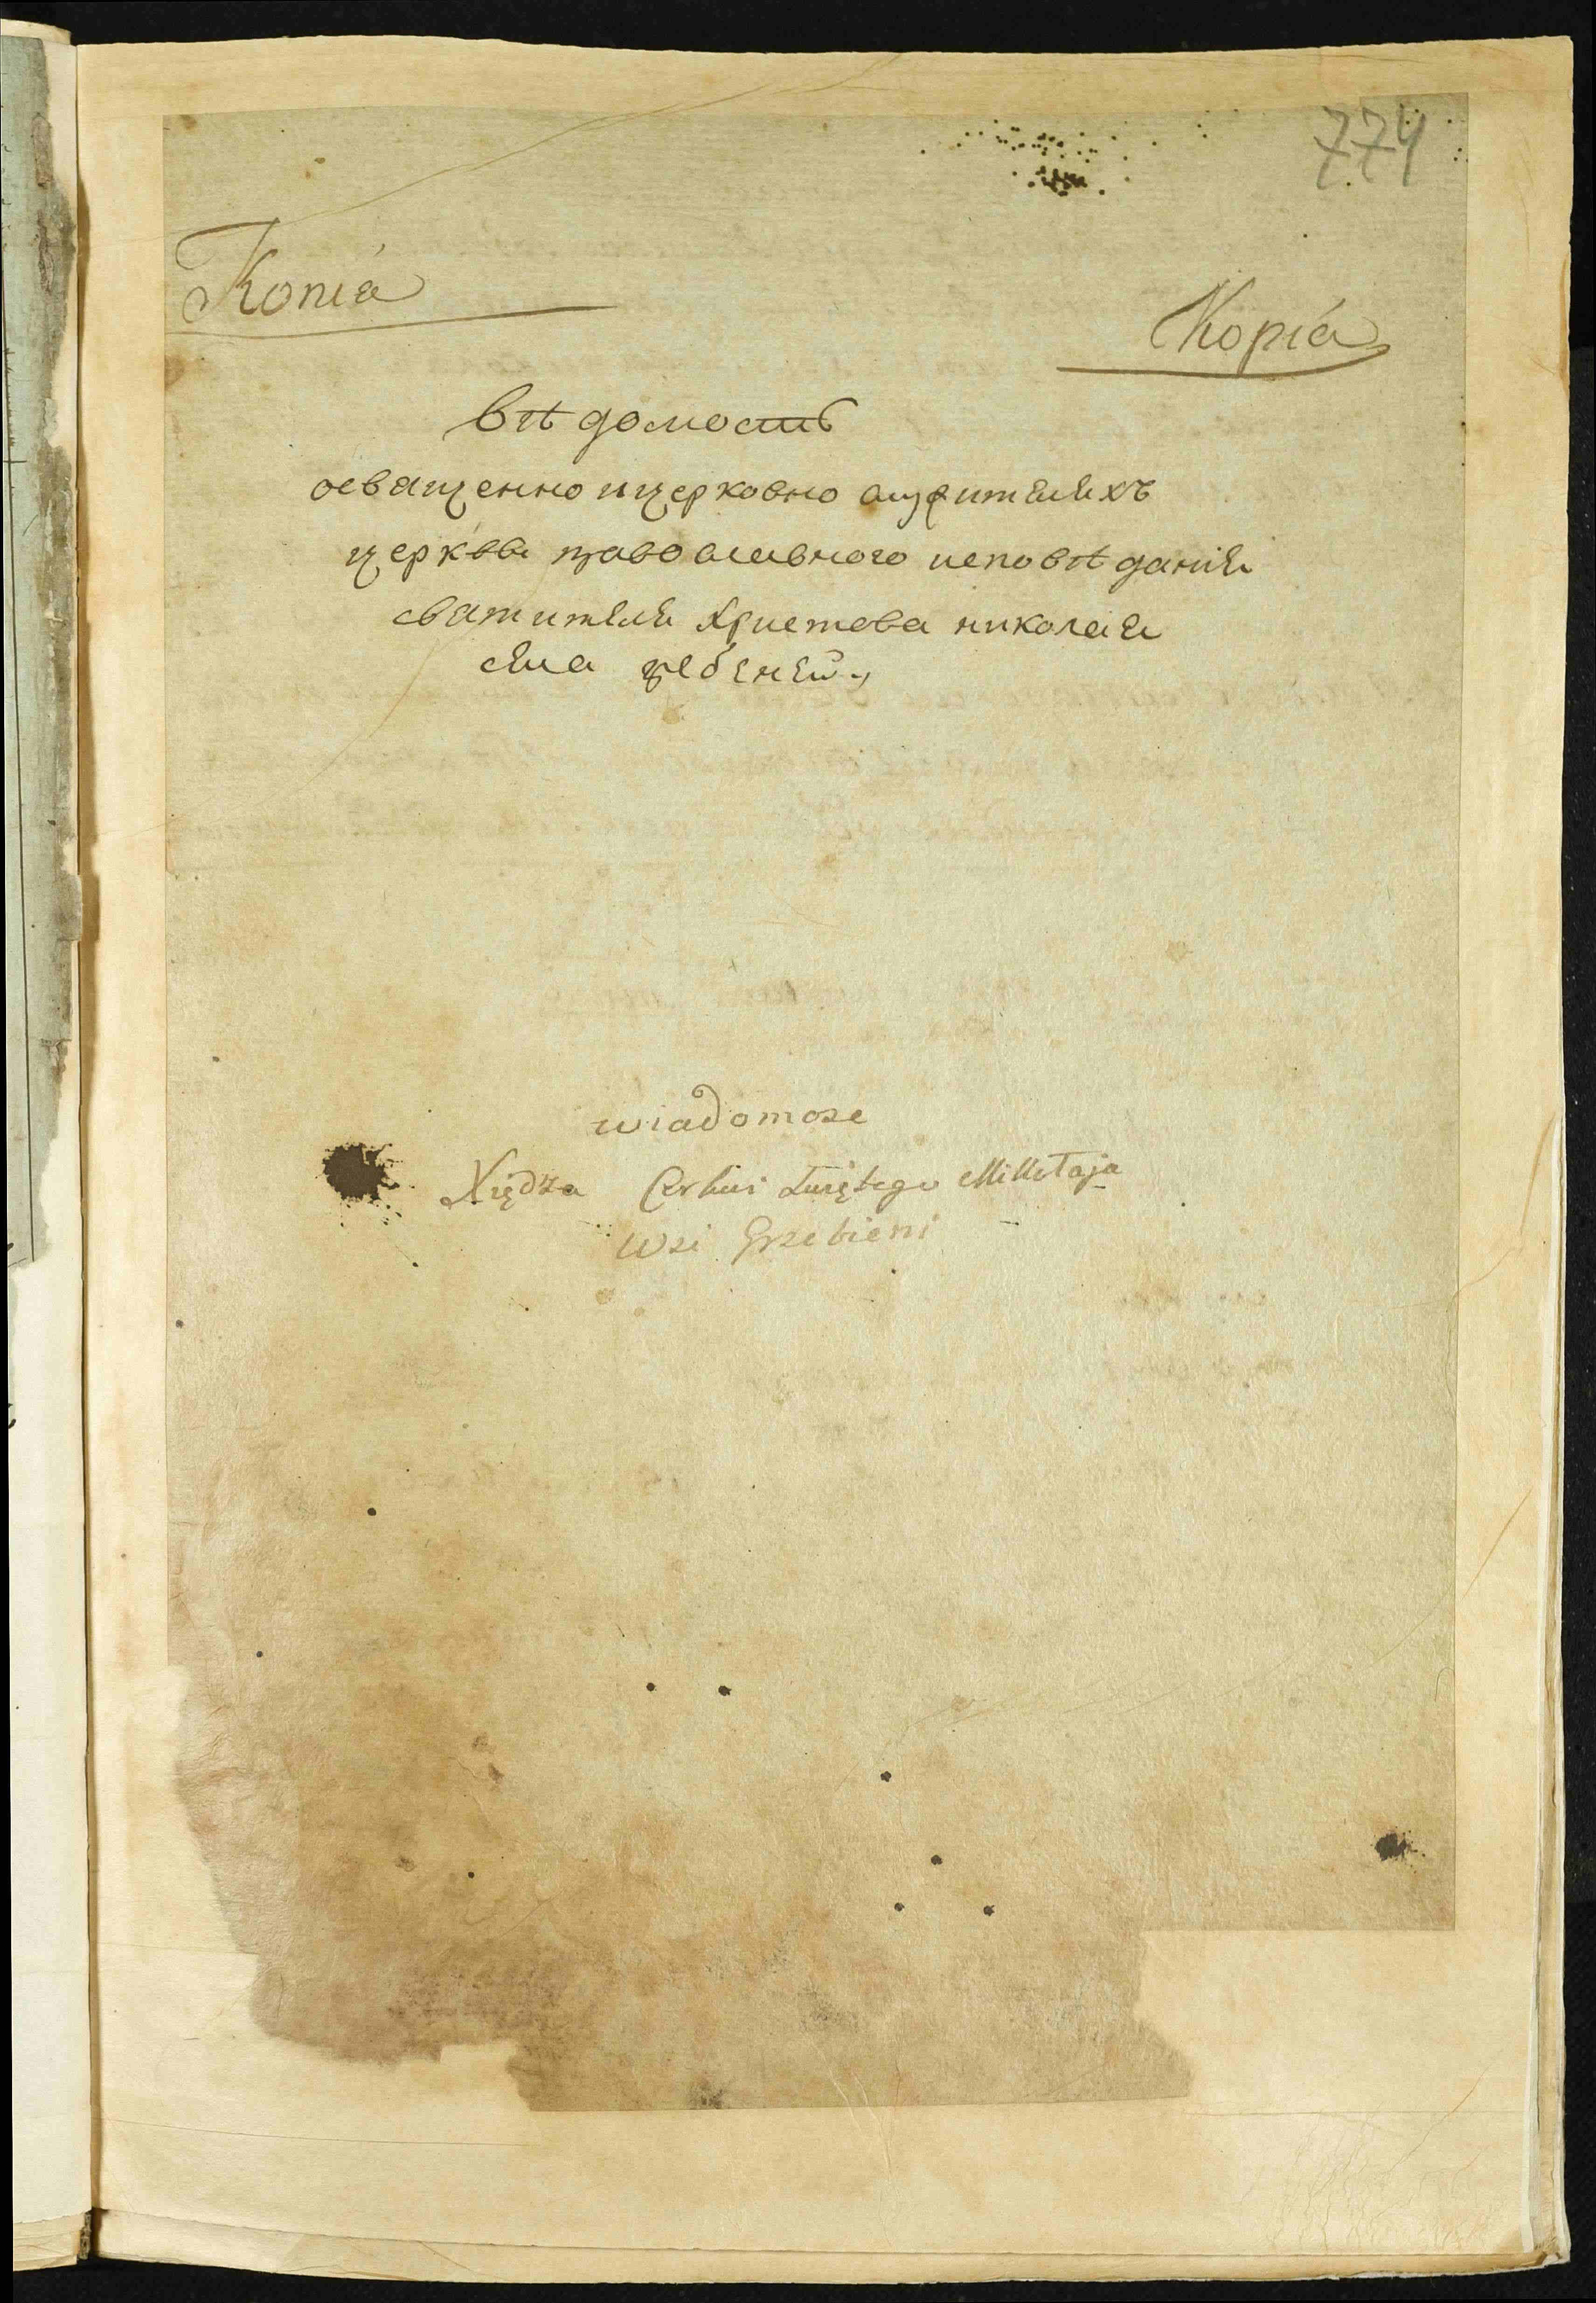 774
Копіа
Kopia
вѣдомость
осващенно ицерковно служителяхъ
церкьви православного исповѣданія
святителя Христова николая
села гребеней
wiadomosc
Xiędza Cerkwi Swiętego Mikołaja
Wsi Grzebieni